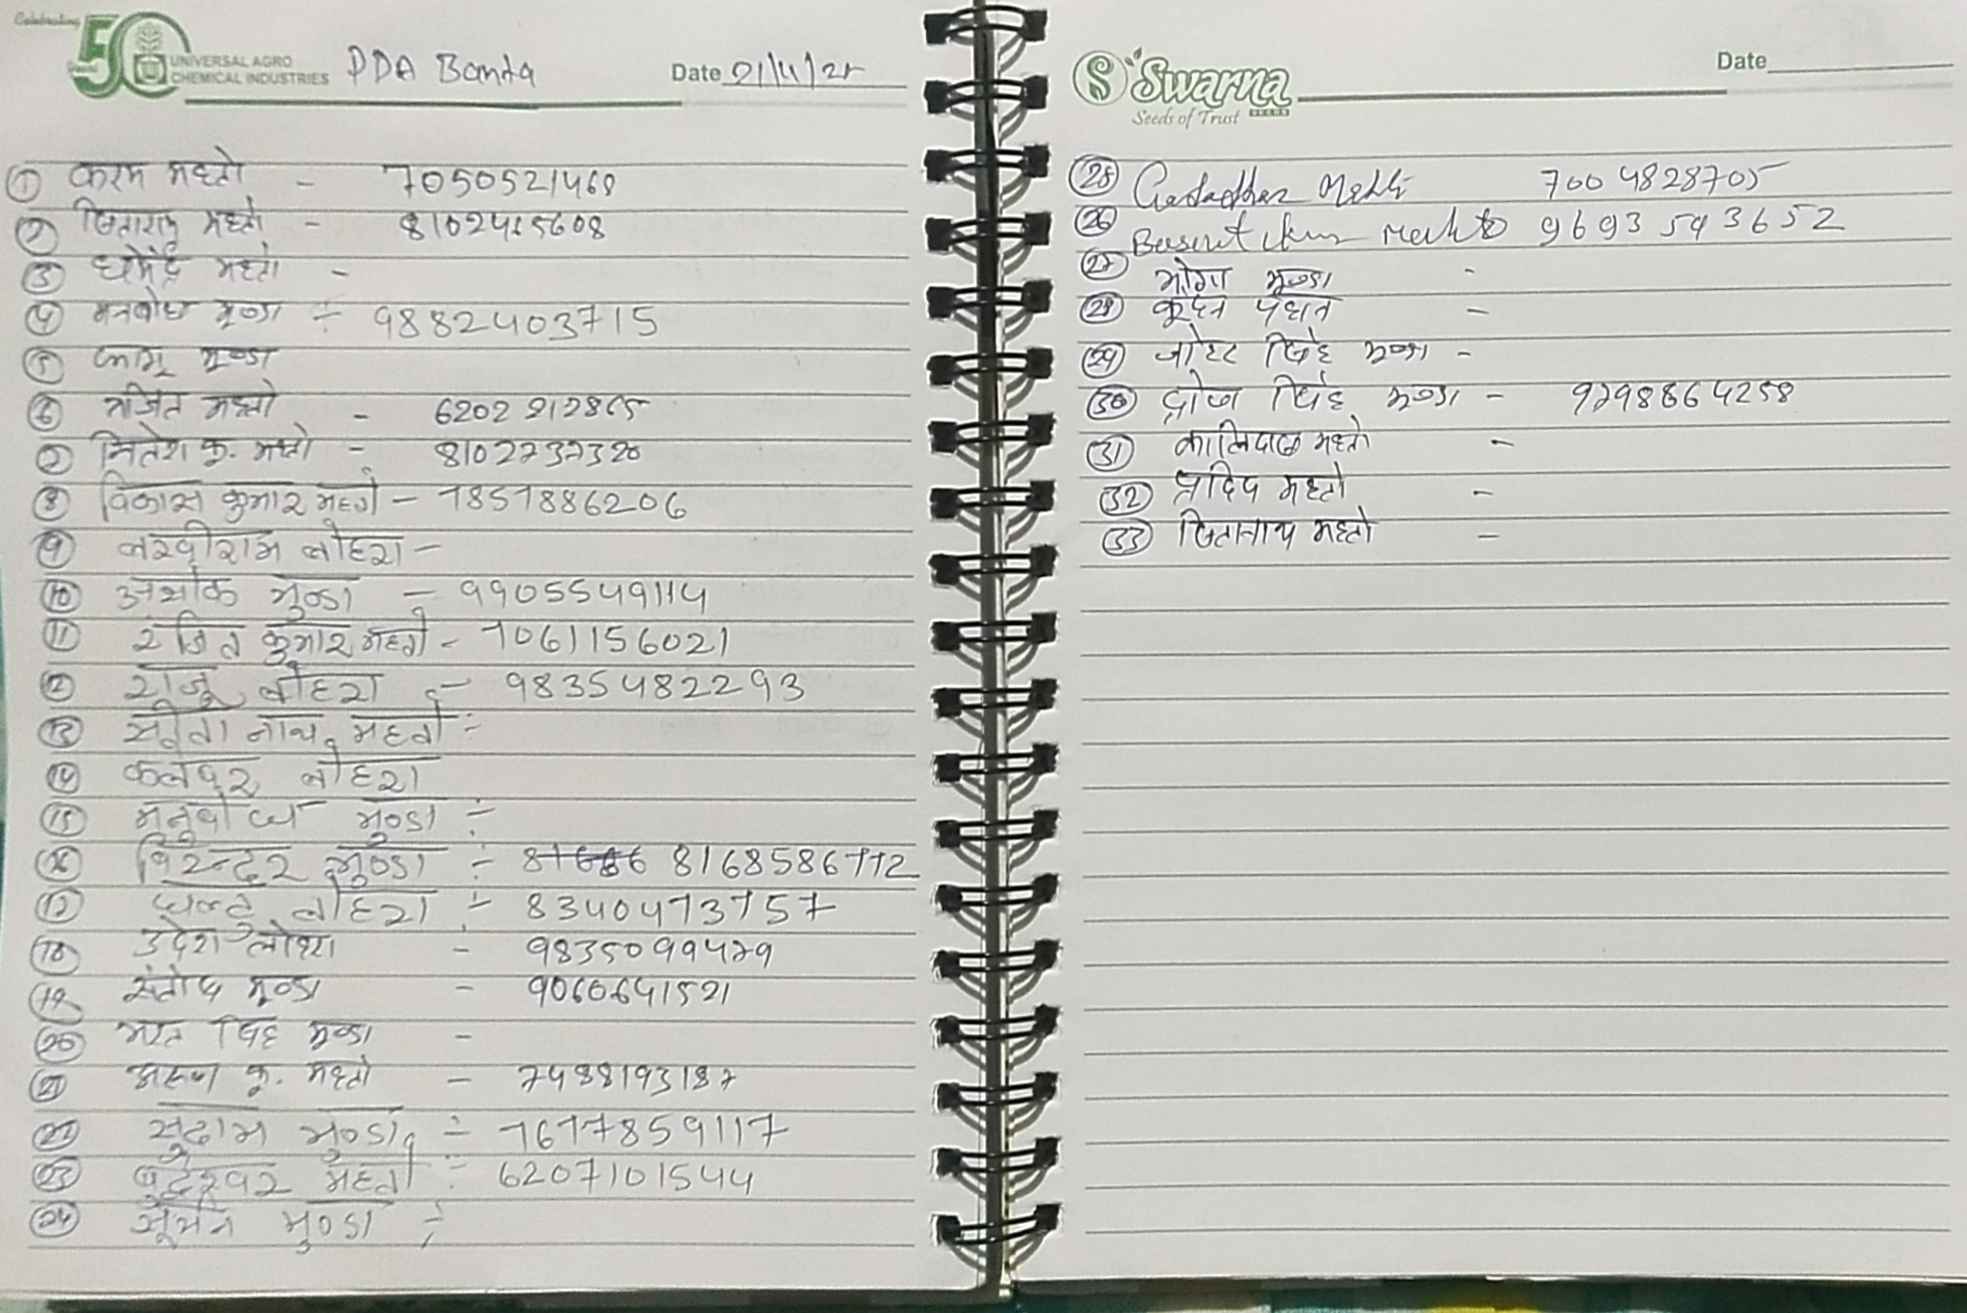 Celebrating
50
UNIVERSAL AGRO
CHEMICAL INDUSTRIES
PDA Banta
Date 21/4/25
① करम महतो - 7050521468
② सिताराम महतो - 8102465608
③ धर्मेंद्र महतो -
④ मनबोध मुण्डा ÷ 9882403715
⑤ मुण्डा
⑥ महतो - 6202212865
⑦ नितेश कु. महतो - 8102737320
⑧ विकास कुमार महतो - 7857886206
⑨ लखीराम लोहरा -
⑩ अशोक मुण्डा - 9905549114
⑪ रंजित कुमार महतो - 7061156021
⑫ राजू लोहरा - 9835482293
⑬ सीता नाथ महतो -
⑭ लोहरा
⑮ मनुबोध मुण्डा ÷
⑯ बिरेन्दर मुण्डा ÷ 8168586772
⑰ लोहरा ÷ 8340473757
⑱ उदेश लोहरा - 9835099479
⑲ संतोष मुण्डा - 9060641521
⑳ भरत सिंह मुण्डा -
㉑ अरूण कु. महतो - 7488193187
㉒ सुदाम मुण्डा ÷ 7677859117
㉓ बुद्धेश्वर महतो - 6207101544
㉔ मुण्डा ÷
Swarna
Seeds of Trust
Date
㉕ Gadadhar 7004828705
㉖ Basant Kum Mahto 9693593652
㉗ मुण्डा -
㉘ प्रधान -
㉙ सिंह मुण्डा -
㉚ सिंह मुण्डा - 9798864258
㉛ कालिपाद महतो -
㉜ प्रदिप महतो -
㉝ सितानाथ महतो -